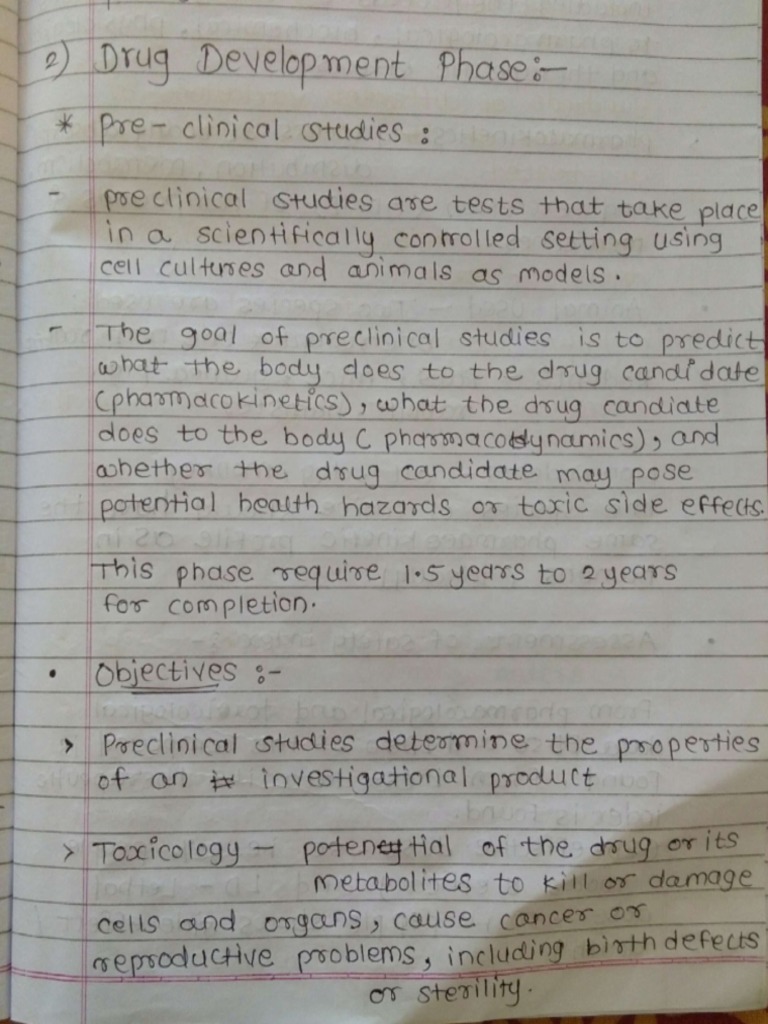 2) Drug Development Phase:-
* Pre-clinical studies :
- preclinical studies are tests that take place
in a scientifically controlled setting using
cell cultures and animals as models.
- The goal of preclinical studies is to predict
what the body does to the drug candidate
(pharmacokinetics), what the drug candiate
does to the body ( pharmacodynamics), and
whether the drug candidate may pose
potential health hazards or toxic side effects.
This phase require 1.5 years to 2 years
for completion.
• Objectives :-
> Preclinical studies determine the properties
of an investigational product
> Toxicology - potential of the drug or its
metabolites to kill or damage
cells and organs, cause cancer or
reproductive problems, including birth defects
or sterility.